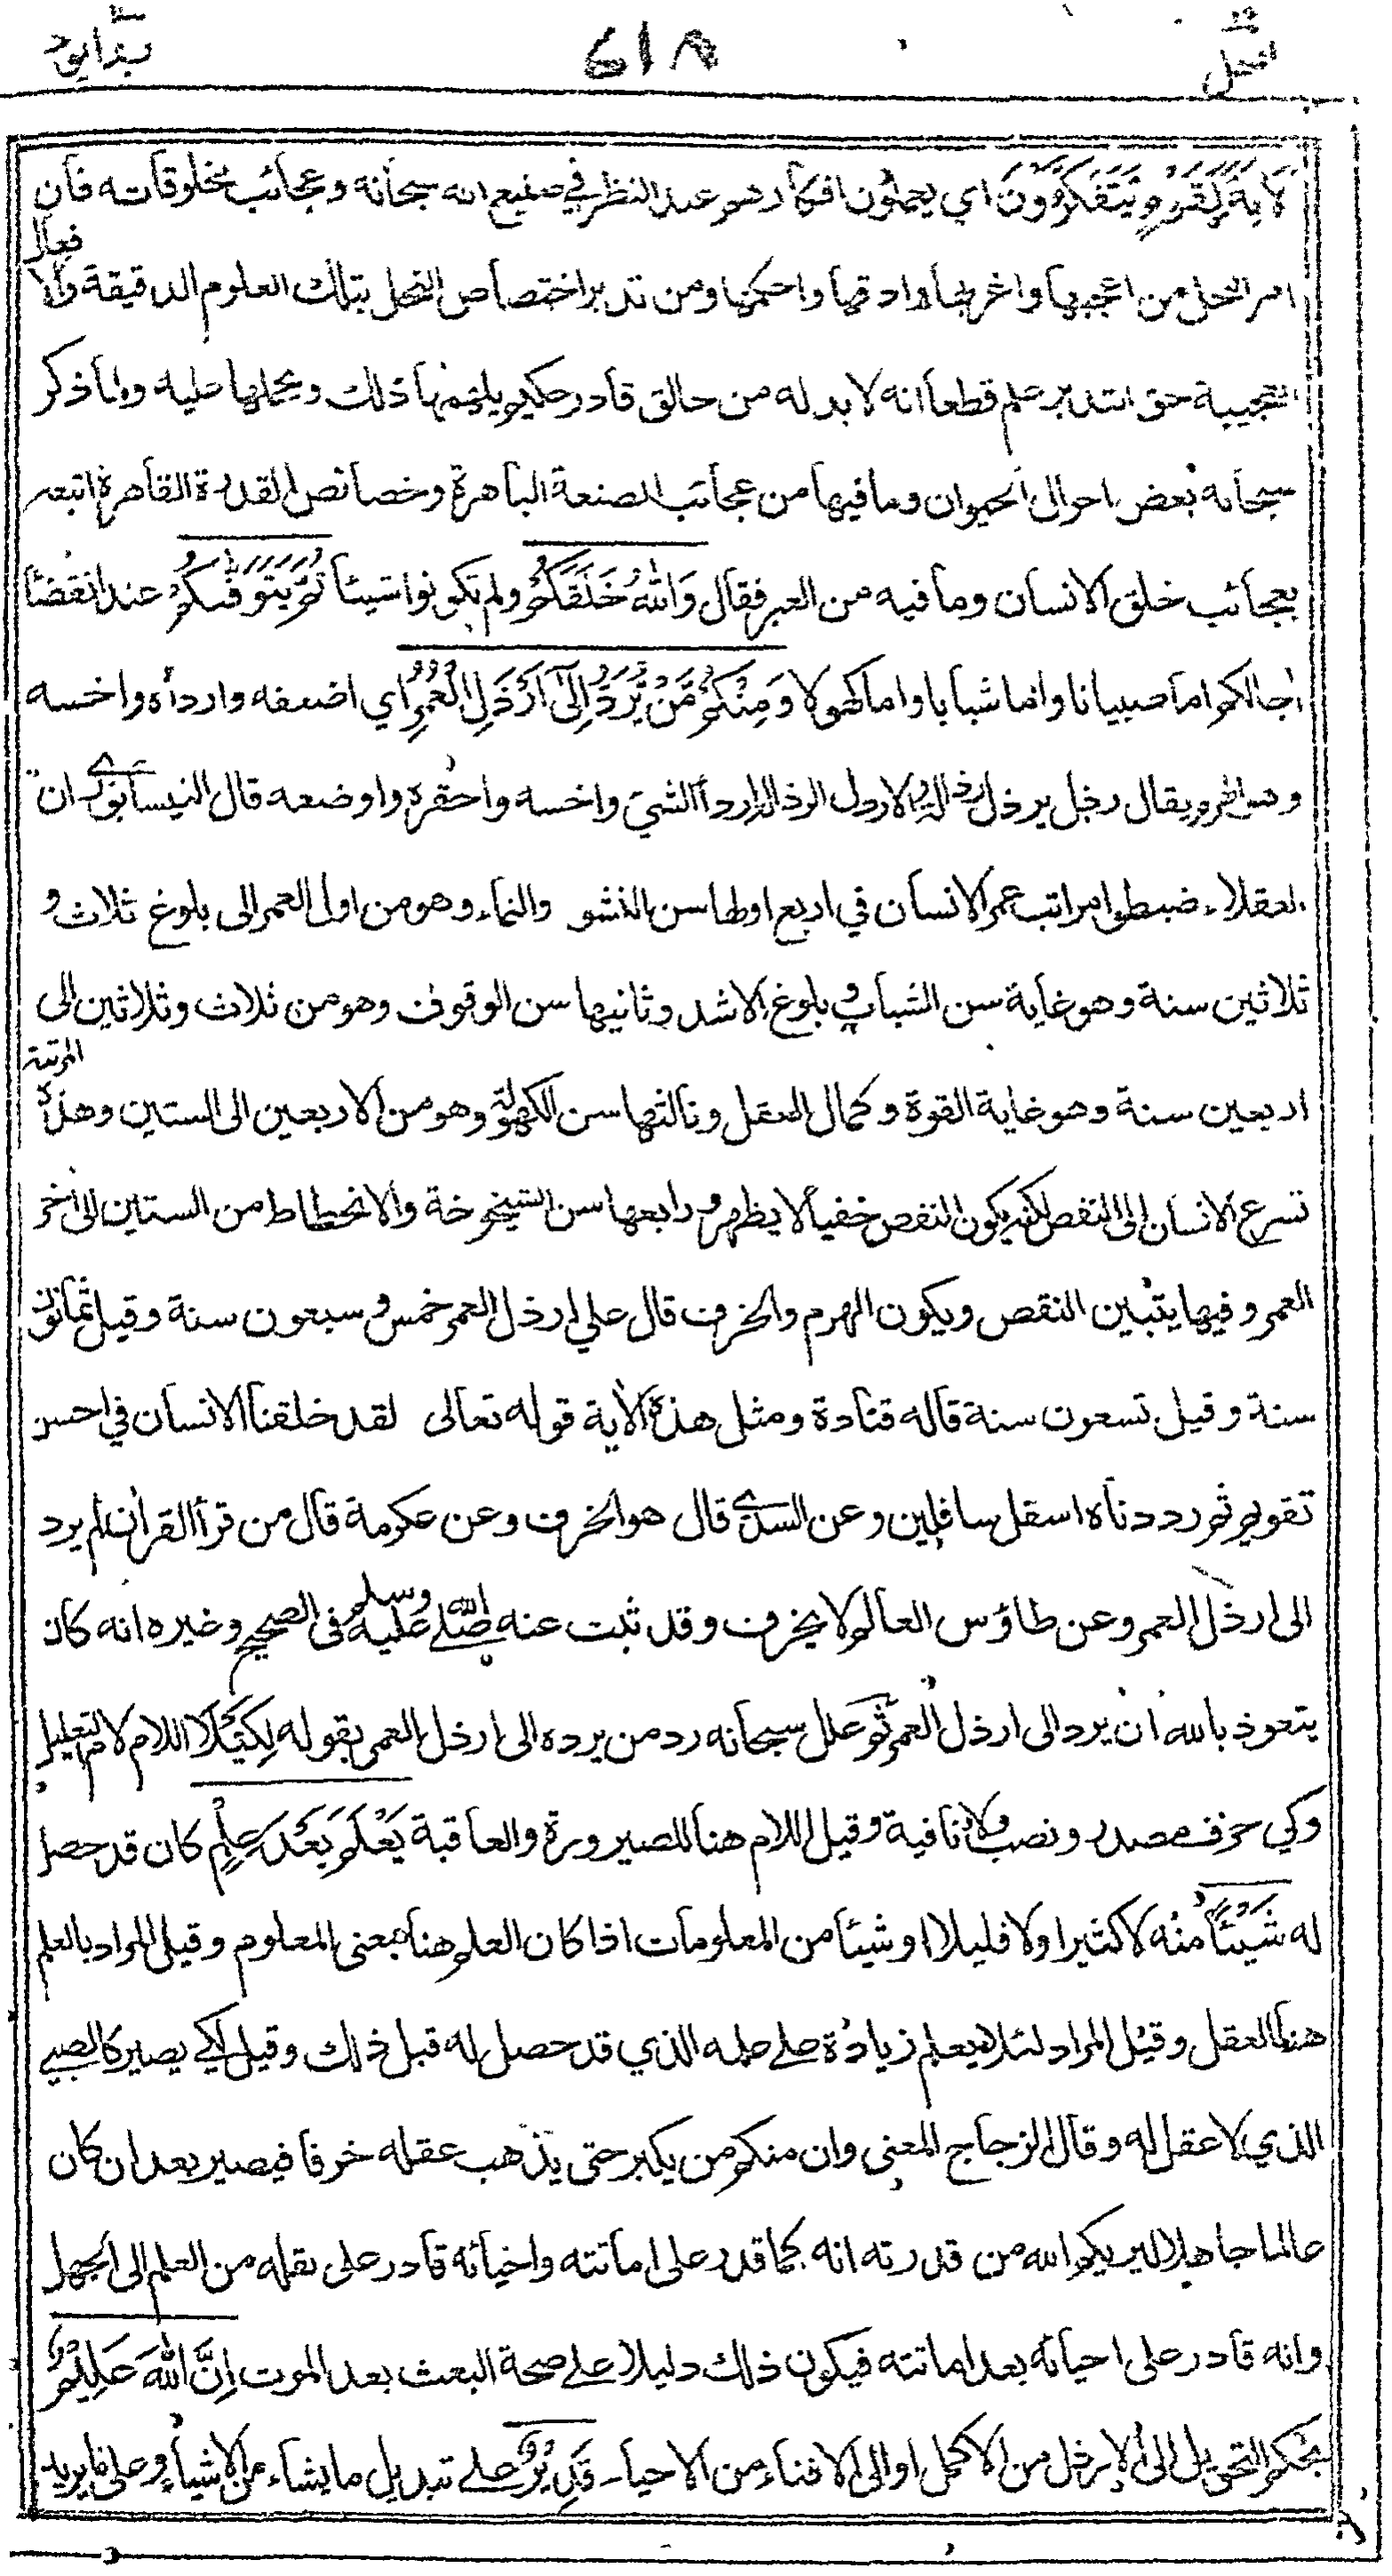 النحل ٦١٨
لَآيَةً لِّقَوْمٍ يَتَفَكَّرُونَ اي يعملون افكارهم عند النظر في صنيع الله سبحانه وعجائب مخلوقاته فان
امر النحل من اعجبها واغربها وادقها واحكمها ومن تدبر اختصاص النحل بتلك العلوم الدقيقة والافعال
العجيبة حق التدبر علم قطعا انه لا بد له من خالق قادر حكيم يلهمها ذلك ويحملها عليه ولما ذكر
سبحانه بعض احوال الحيوان وما فيها من عجائب الصنعة الباهرة وخصائص القدرة القاهرة اتبعه
بعجائب خلق الانسان وما فيه من العبر فقال وَاللهُ خَلَقَكُمْ ولم تكونوا شيئا ثُمَّ يَتَوَفّٰىكُمْ عند انقضاء
اجالكم اما صبيانا واما شبابا واما كهولا وَمِنْكُمْ مَّنْ يُّرَدُّ اِلٰٓى اَرْذَلِ الْعُمُرِ اي اضعفه واردأه واخسه
وهو الهرم يقال رذل يرذل رذالة والارذل الرذالة اردأ الشيئ واخسه واحقره واوضعه قال النيسابوري ان
العقلاء ضبطوا مراتب عمر الانسان في اربع اولها سن النشو والنماء وهو من اول العمر الى بلوغ ثلاث و
ثلاثين سنة وهو غاية سن الشباب وبلوغ الاشد وثانيها سن الوقوف وهو من ثلاث وثلاثين الى
اربعين سنة وهو غاية القوة وكمال العقل وثالثها سن الكهولة وهو من الاربعين الى الستين وهذه المرتبة
تسرع الانسان الى النقص لكنه يكون النقص خفيا لا يظهر ورابعها سن الشيخوخة والانحطاط من الستين الى اخر
العمر وفيها يتبين النقص ويكون الهرم والخرف قال علي ارذل العمر خمس وسبعون سنة وقيل ثمانون
سنة وقيل تسعون سنة قاله قتادة ومثل هذه الاية قوله تعالى لقد خلقنا الانسان في احسن
تقويم ثم رددناه اسفل سافلين وعن السدي قال هو الخرف وعن عكرمة قال من قرأ القران لم يرد
الى ارذل العمر وعن طاؤس العالم لا يخرف وقد ثبت عنه صلى الله عليه وسلم فى الصحيح وغيره انه كان
يتعوذ بالله ان يرد الى ارذل العمر ثم علل سبحانه رد من يرده الى ارذل العمر بقوله لِكَيْلَا اللام لام التعليل
وكي حرف مصدر ونصب ولا نافية وقيل اللام هنا للصيرورة والعاقبة يَعْلَمَ بَعْدَ عِلْمٍ كان قد حصل
له شَيْئًا منه لا كثيرا ولا قليلا او شيئا من المعلومات اذا كان العلم هنا بمعنى المعلوم وقيل المراد بالعلم
هنا العقل وقيل المراد لئلا يعلم زيادة على علمه الذي قد حصل له قبل ذلك وقيل لكي يصير كالصبي
الذي لا عقل له وقال الزجاج المعنى وان منكم من يكبر حتى يذهب عقله خرفا فيصير بعد ان كان
عالما جاهلا ليريكم الله من قدرته انه كما قدر على اماتته واحيائه قادر على نقله من العلم الى الجهل
وانه قادر على احيائه بعد اماتته فيكون ذلك دليلا على صحة البعث بعد الموت اِنَّ اللهَ عَلِيْمٌ
بحكم التحويل الى الارذل من الاكمل او الى الافناء من الاحياء قَدِيْرٌ على تبديل ما يشاء من الاشياء وعلى ما يريد